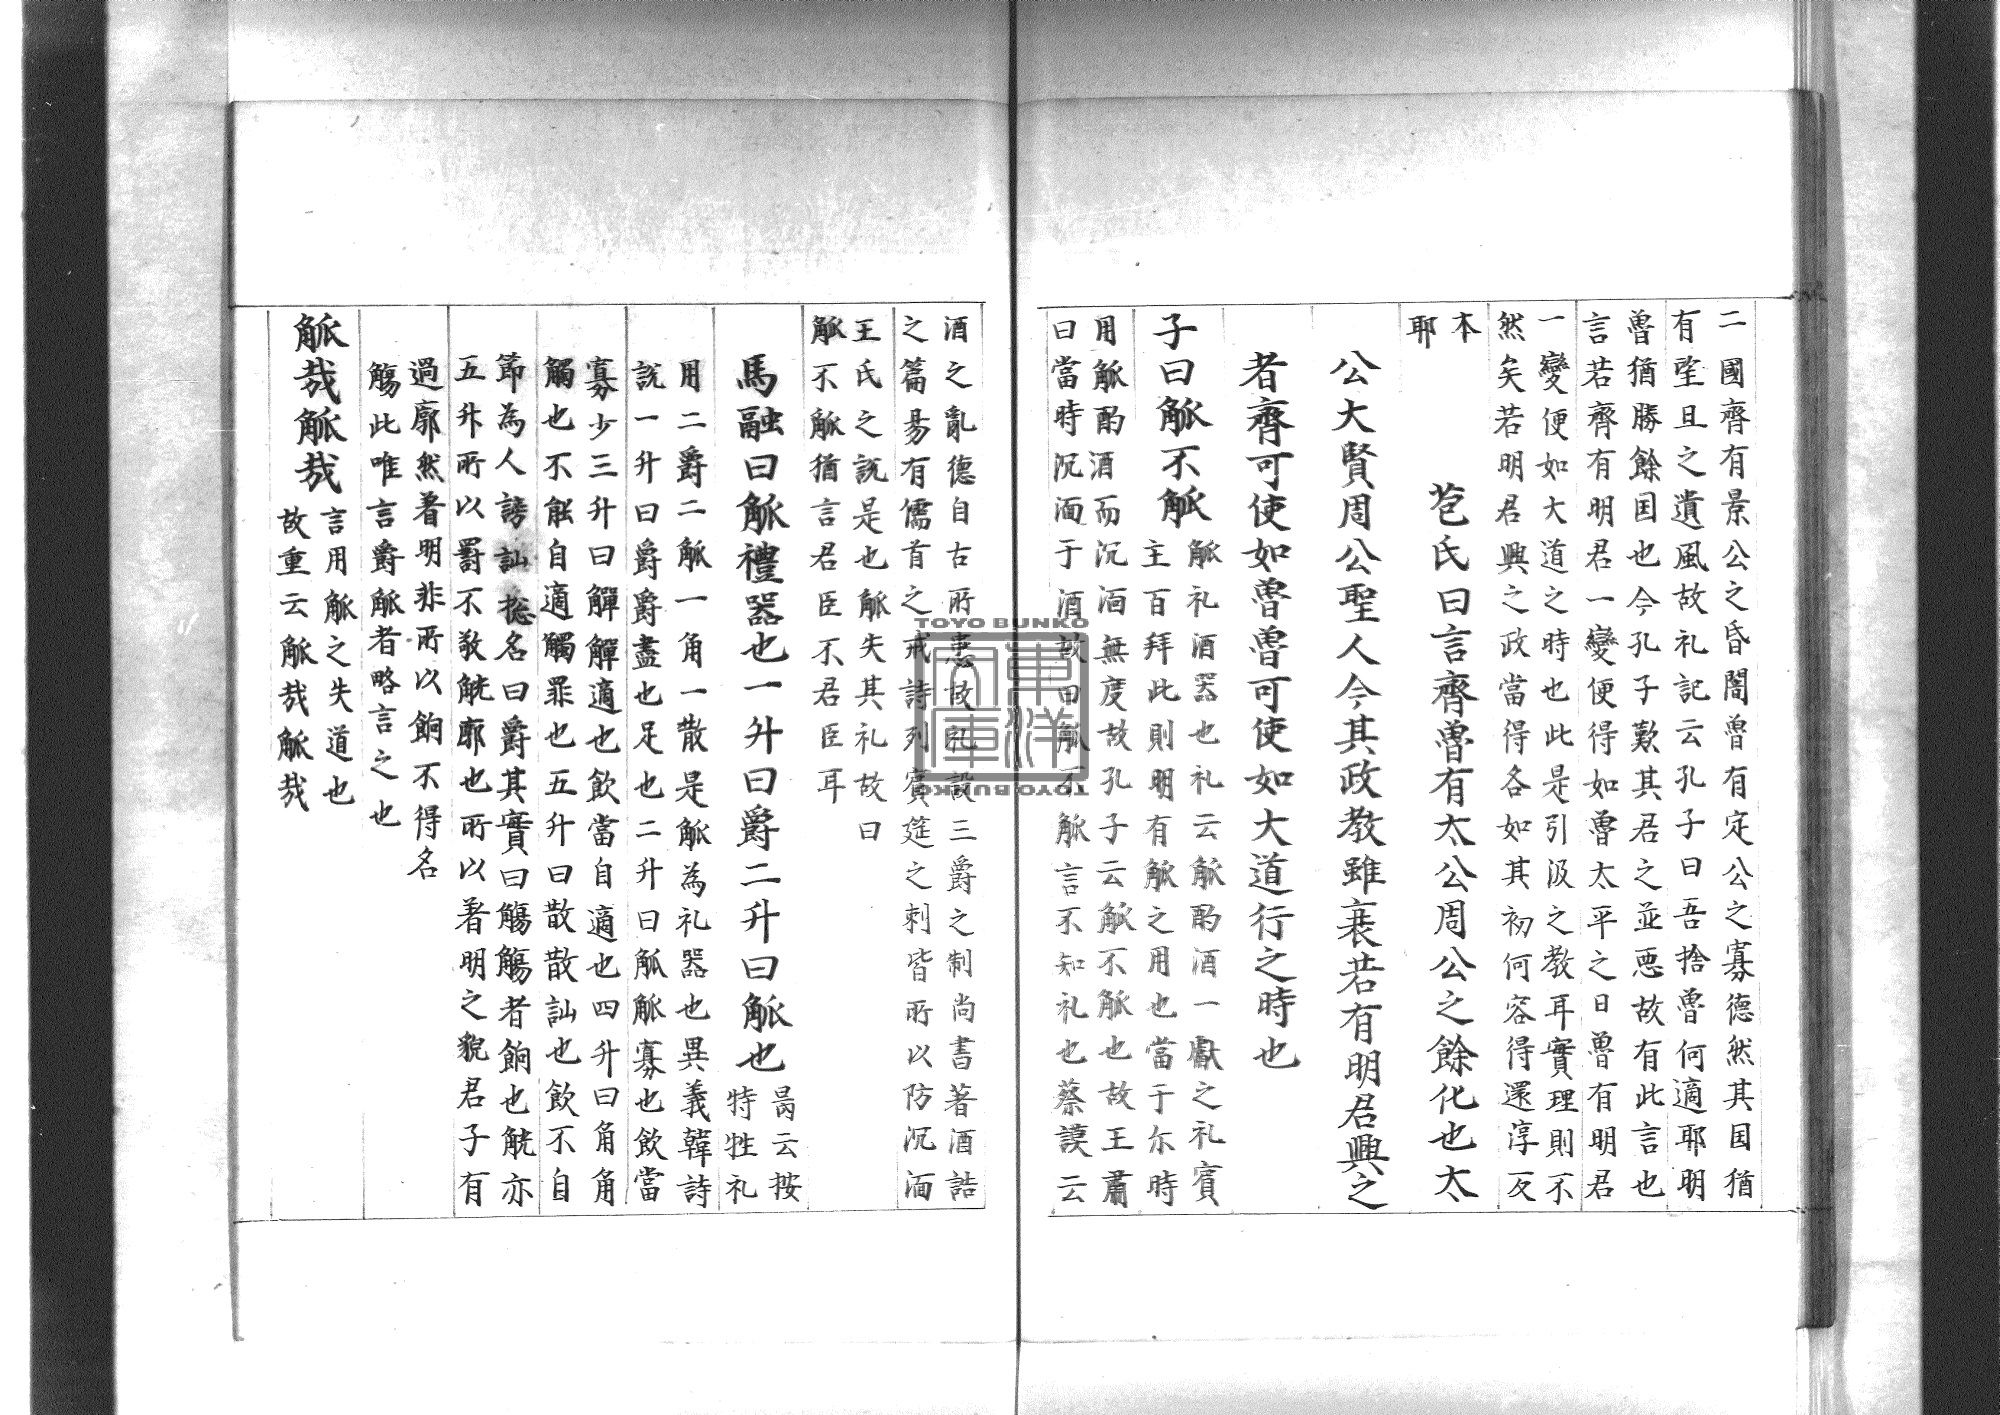 二國齊有景公之昏闇魯有定公之寡德然其国猶
有望旦之遺風故礼記云孔子曰吾捨魯何適耶明
魯猶勝餘国也今孔子歎其君之並悪故有此言也
言若齊有明君一變便得如魯太平之日魯有明君
一變便如大道之時也此是引汲之教耳實理則不
然矣若明君興之政當得各如其初何容得還淳反
本
耶
苞氏曰言齊魯有太公周公之餘化也太
公大賢周公聖人今其政教雖衰若有明君興之
者齊可使如魯魯可使如大道行之時也
子曰觚不觚
觚礼酒器也礼云觚酌酒一獻之礼賓
主百拜此則明有觚之用也當于尓時
用觚酌酒而沉湎無度故孔子云觚不觚也故王肅
曰當時沉湎于酒故曰觚不觚言不知礼也蔡謨云
酒之亂德自古所患故礼設三爵之制尚書著酒誥
之篇易有儒首之戒詩列賓筵之刺皆所以防沉湎
王氏之說是也觚失其礼故曰
觚不觚猶言君臣不君臣耳
馬融曰觚禮器也一升曰爵二升曰觚也
昺云按
特牲礼
用二爵二觚一角一散是觚為礼器也異義韓詩
說一升曰爵爵盡也足也二升曰觚觚寡也飲當
寡少三升曰觶觶適也飲當自適也四升曰角角
觸也不能自適觸罪也五升曰散散訕也飲不自
節為人謗訕捴名曰爵其實曰觴觴者餉也觥亦
五升所以罰不敬觥廓也所以著明之貌君子有
過廓然著明非所以餉不得名
觴此唯言爵觚者略言之也
觚哉觚哉
言用觚之失道也
故重云觚哉觚哉
TOYO BUNKO
東洋文庫
TOYO BUNKO